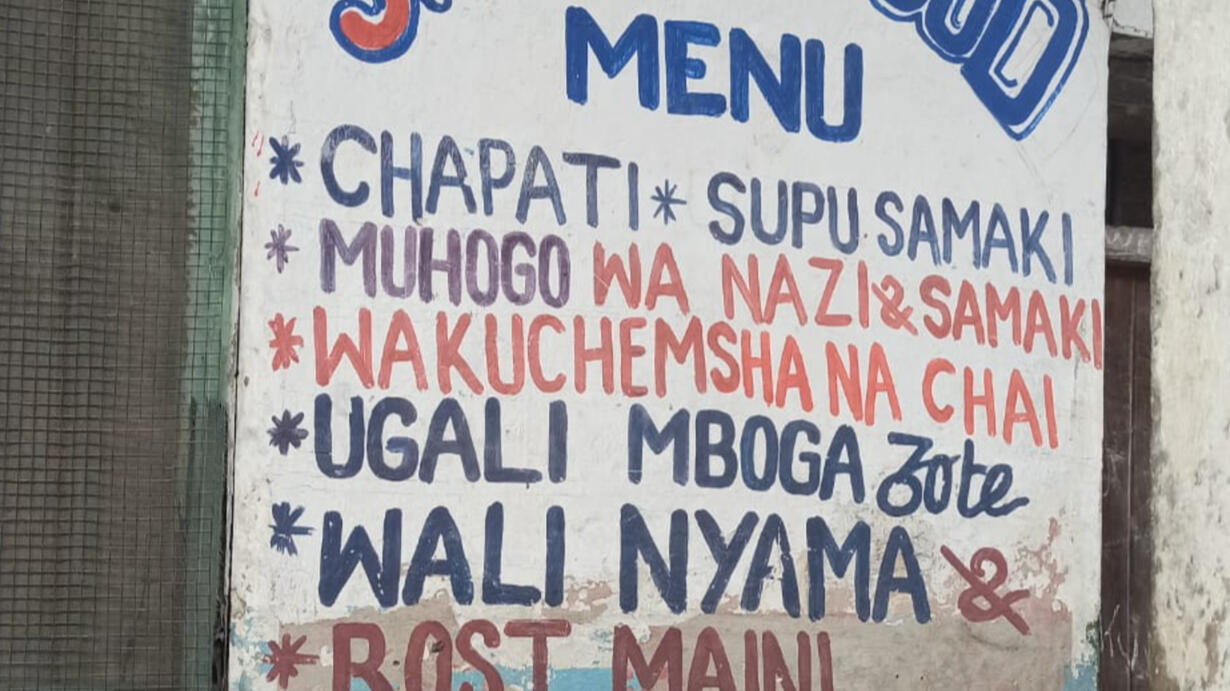 MENU
* CHAPATI * SUPU SAMAKI
* MUHOGO WA NAZI & SAMAKI
* WAKUCHEMSHA NA CHAI
* UGALI MBOGA Zote
* WALI NYAMA &
* ROST MAINI